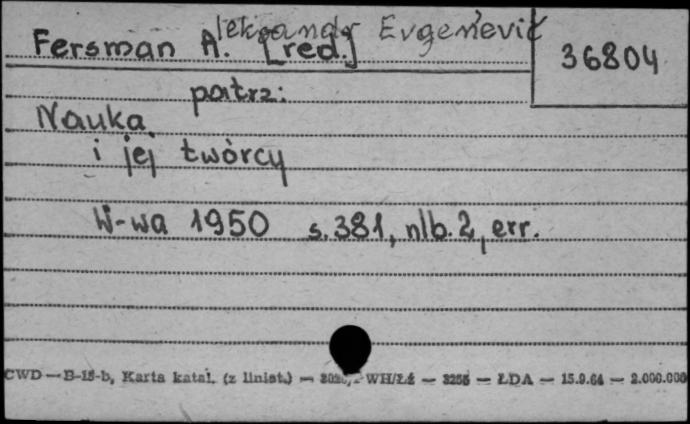 Fersman A.leksandr Evgenevič [red.]
36804
patrz:
Nauka
i jej twórcy
W-wa 1950 s. 381, nlb. 2, err.
CWD — B-15-b, Karta katal. (z liniat.) — WH/Łź — 3255 — ŁDA — 15.9.64 — 2.000.000